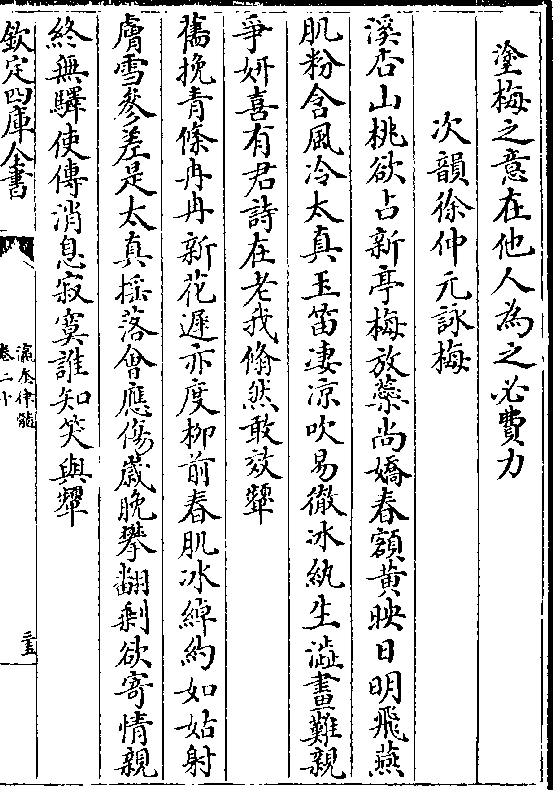 塗梅之意在他人為之必費力
次韻徐仲元詠梅
溪杏山桃欲占新亭梅放蘂尚嬌春額黃映日明飛燕
肌粉含風冷太真玉笛凄凉吹易徹冰紈生澁畫難親
爭妍喜有君詩在老我翛然敢效顰
舊挽青條冉冉新花遲亦度柳前春肌冰綽約如姑射
膚雪參差是太真揺落會應傷歲晚攀翻剩欲寄情親
終無驛使傳消息寂寞誰知笑與顰
欽定四庫全書
瀛奎律髓
卷二十